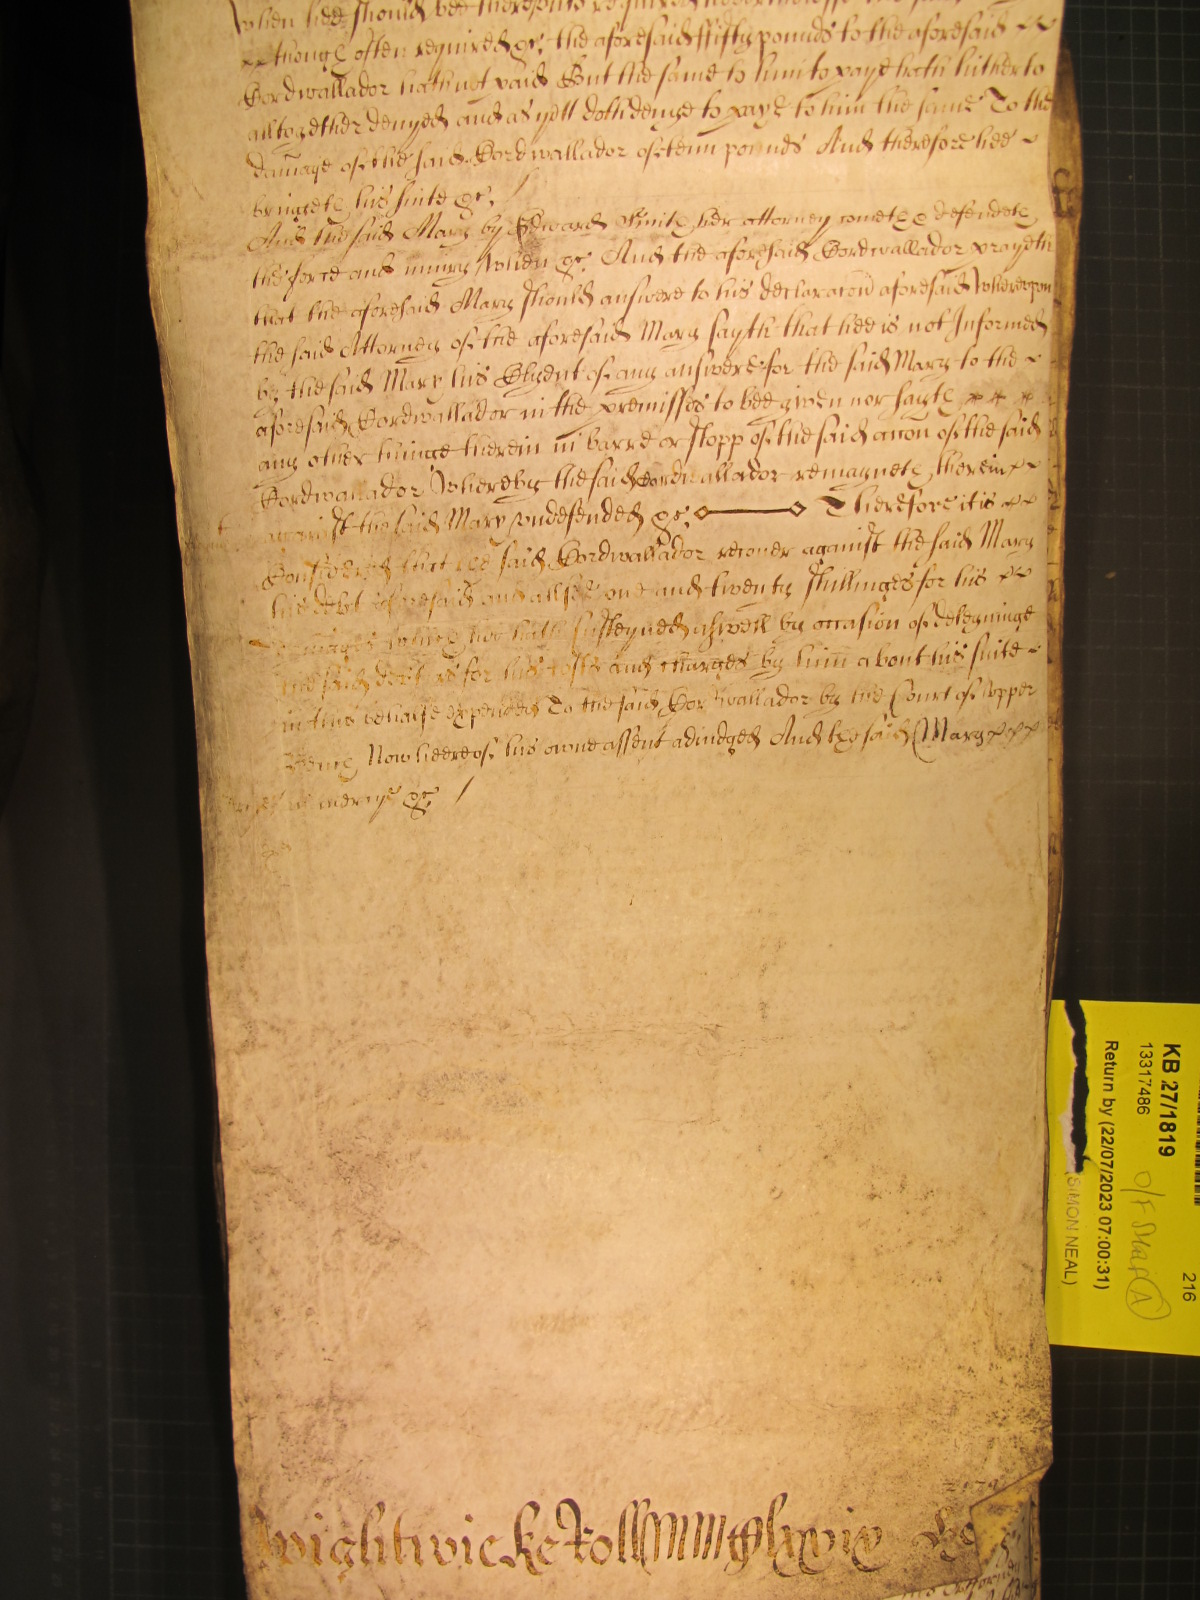 when hee should bee thereunto
though often required &c. the aforesaid ffifty pounds to the aforesaid
Cordwallador hath not paid But the same to him to paye hath hitherto
alltogether denyed and as yett doth denye to paye to him the same To the
damage of the said Cordwallador of tenn pounds And therefore hee
bringeth his suite &c.
And the said Mary by Edward White her attorney cometh & defendeth
the force and iniury when &c. And the aforesaid Cordwallador prayeth
that the aforesaid Mary should answere to his declaracon aforesaid Whereupon
the said Attorney of the aforesaid Mary sayth that hee is not Informed
by the said Mary his Clyent of any answere for the said Mary to the
aforesaid Cordwallador in the premisses to bee given nor sayth
any other thinge therein in barre or stopp of the said accon of the said
Cordwallador Whereby the said Cordwallador remayneth therein
against the said Mary undefended &c. Therefore it is
Considered that the said Cordwallador recover against the said Mary
his debt aforesaid and allsoe one and twenty shillinges for his
damages which hee hath susteyned aswell by occasion of deteyninge
the said debt as for his costs and charges by him about his suite
in this behalfe expended To the said Cordwallador by the Court of Upper
Bench Now heere of his owne assent adiudged And the said Mary
in mercye &c.
Wightwicke Roll lxxix
KB 27/1819
13317486
O/F
A
Return by (22/07/2023 07:00:31)
(SIMON NEAL)
216